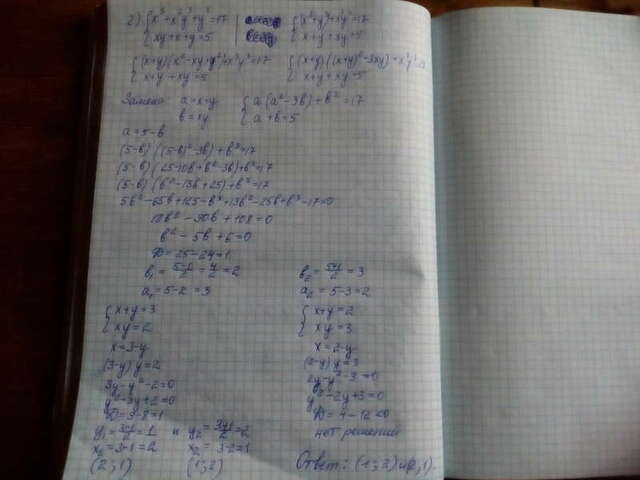 2) { x³ + x³y³ + y³ = 17 { x³ + y³ + x³y³ = 17
{ xy + x + y = 5 { x + y + xy = 5
{ (x+y)(x² - xy + y²) + x³y³ = 17 { (x+y)((x+y)² - 3xy) + x³y³ = 17
{ x + y + xy = 5 { x + y + xy = 5
Замена: a = x + y { a(a² - 3b) + b³ = 17
b = xy { a + b = 5
a = 5 - b
(5-b)((5-b)² - 3b) + b³ = 17
(5-b)(25 - 10b + b² - 3b) + b³ = 17
(5-b)(b² - 13b + 25) + b³ = 17
5b² - 65b + 125 - b³ + 13b² - 25b + b³ - 17 = 0
18b² - 90b + 108 = 0
b² - 5b + 6 = 0
D = 25 - 24 = 1
b₁ = (5-1)/2 = 4/2 = 2 b₂ = (5+1)/2 = 3
a₁ = 5 - 2 = 3 a₂ = 5 - 3 = 2
{ x + y = 3 { x + y = 2
{ xy = 2 { xy = 3
x = 3 - y x = 2 - y
(3-y)y = 2 (2-y)y = 3
3y - y² - 2 = 0 2y - y² - 3 = 0
y² - 3y + 2 = 0 y² - 2y + 3 = 0
D = 9 - 8 = 1 D = 4 - 12 < 0
y₁ = (3-1)/2 = 1 и y₂ = (3+1)/2 = 2 нет решений
x₁ = 3 - 1 = 2 x₂ = 3 - 2 = 1
(2; 1) (1; 2) Ответ: (1; 2) и (2; 1).